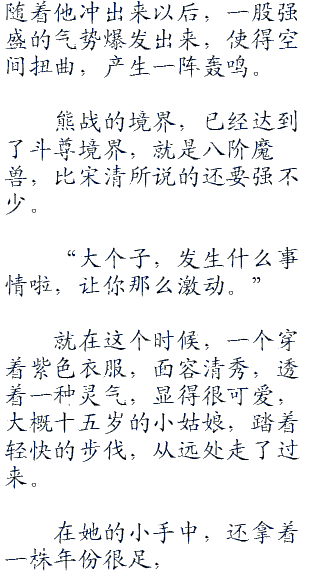 随着他冲出来以后，一股强
盛的气势爆发出来，使得空
间扭曲，产生一阵轰鸣。
熊战的境界，已经达到
了斗尊境界，就是八阶魔
兽，比宋清所说的还要强不
少。
“大个子，发生什么事
情啦，让你那么激动。”
就在这个时候，一个穿
着紫色衣服，面容清秀，透
着一种灵气，显得很可爱，
大概十五岁的小姑娘，踏着
轻快的步伐，从远处走了过
来。
在她的小手中，还拿着
一株年份很足，